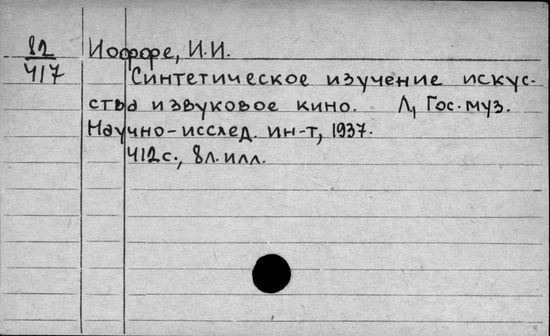 82 Иоффе, И.И.
417 Синтетическое изучение искус-
ства и звуковое кино. Л, Гос. муз.
Научно-исслед. ин-т, 1937.
412 с., 8 л. илл.